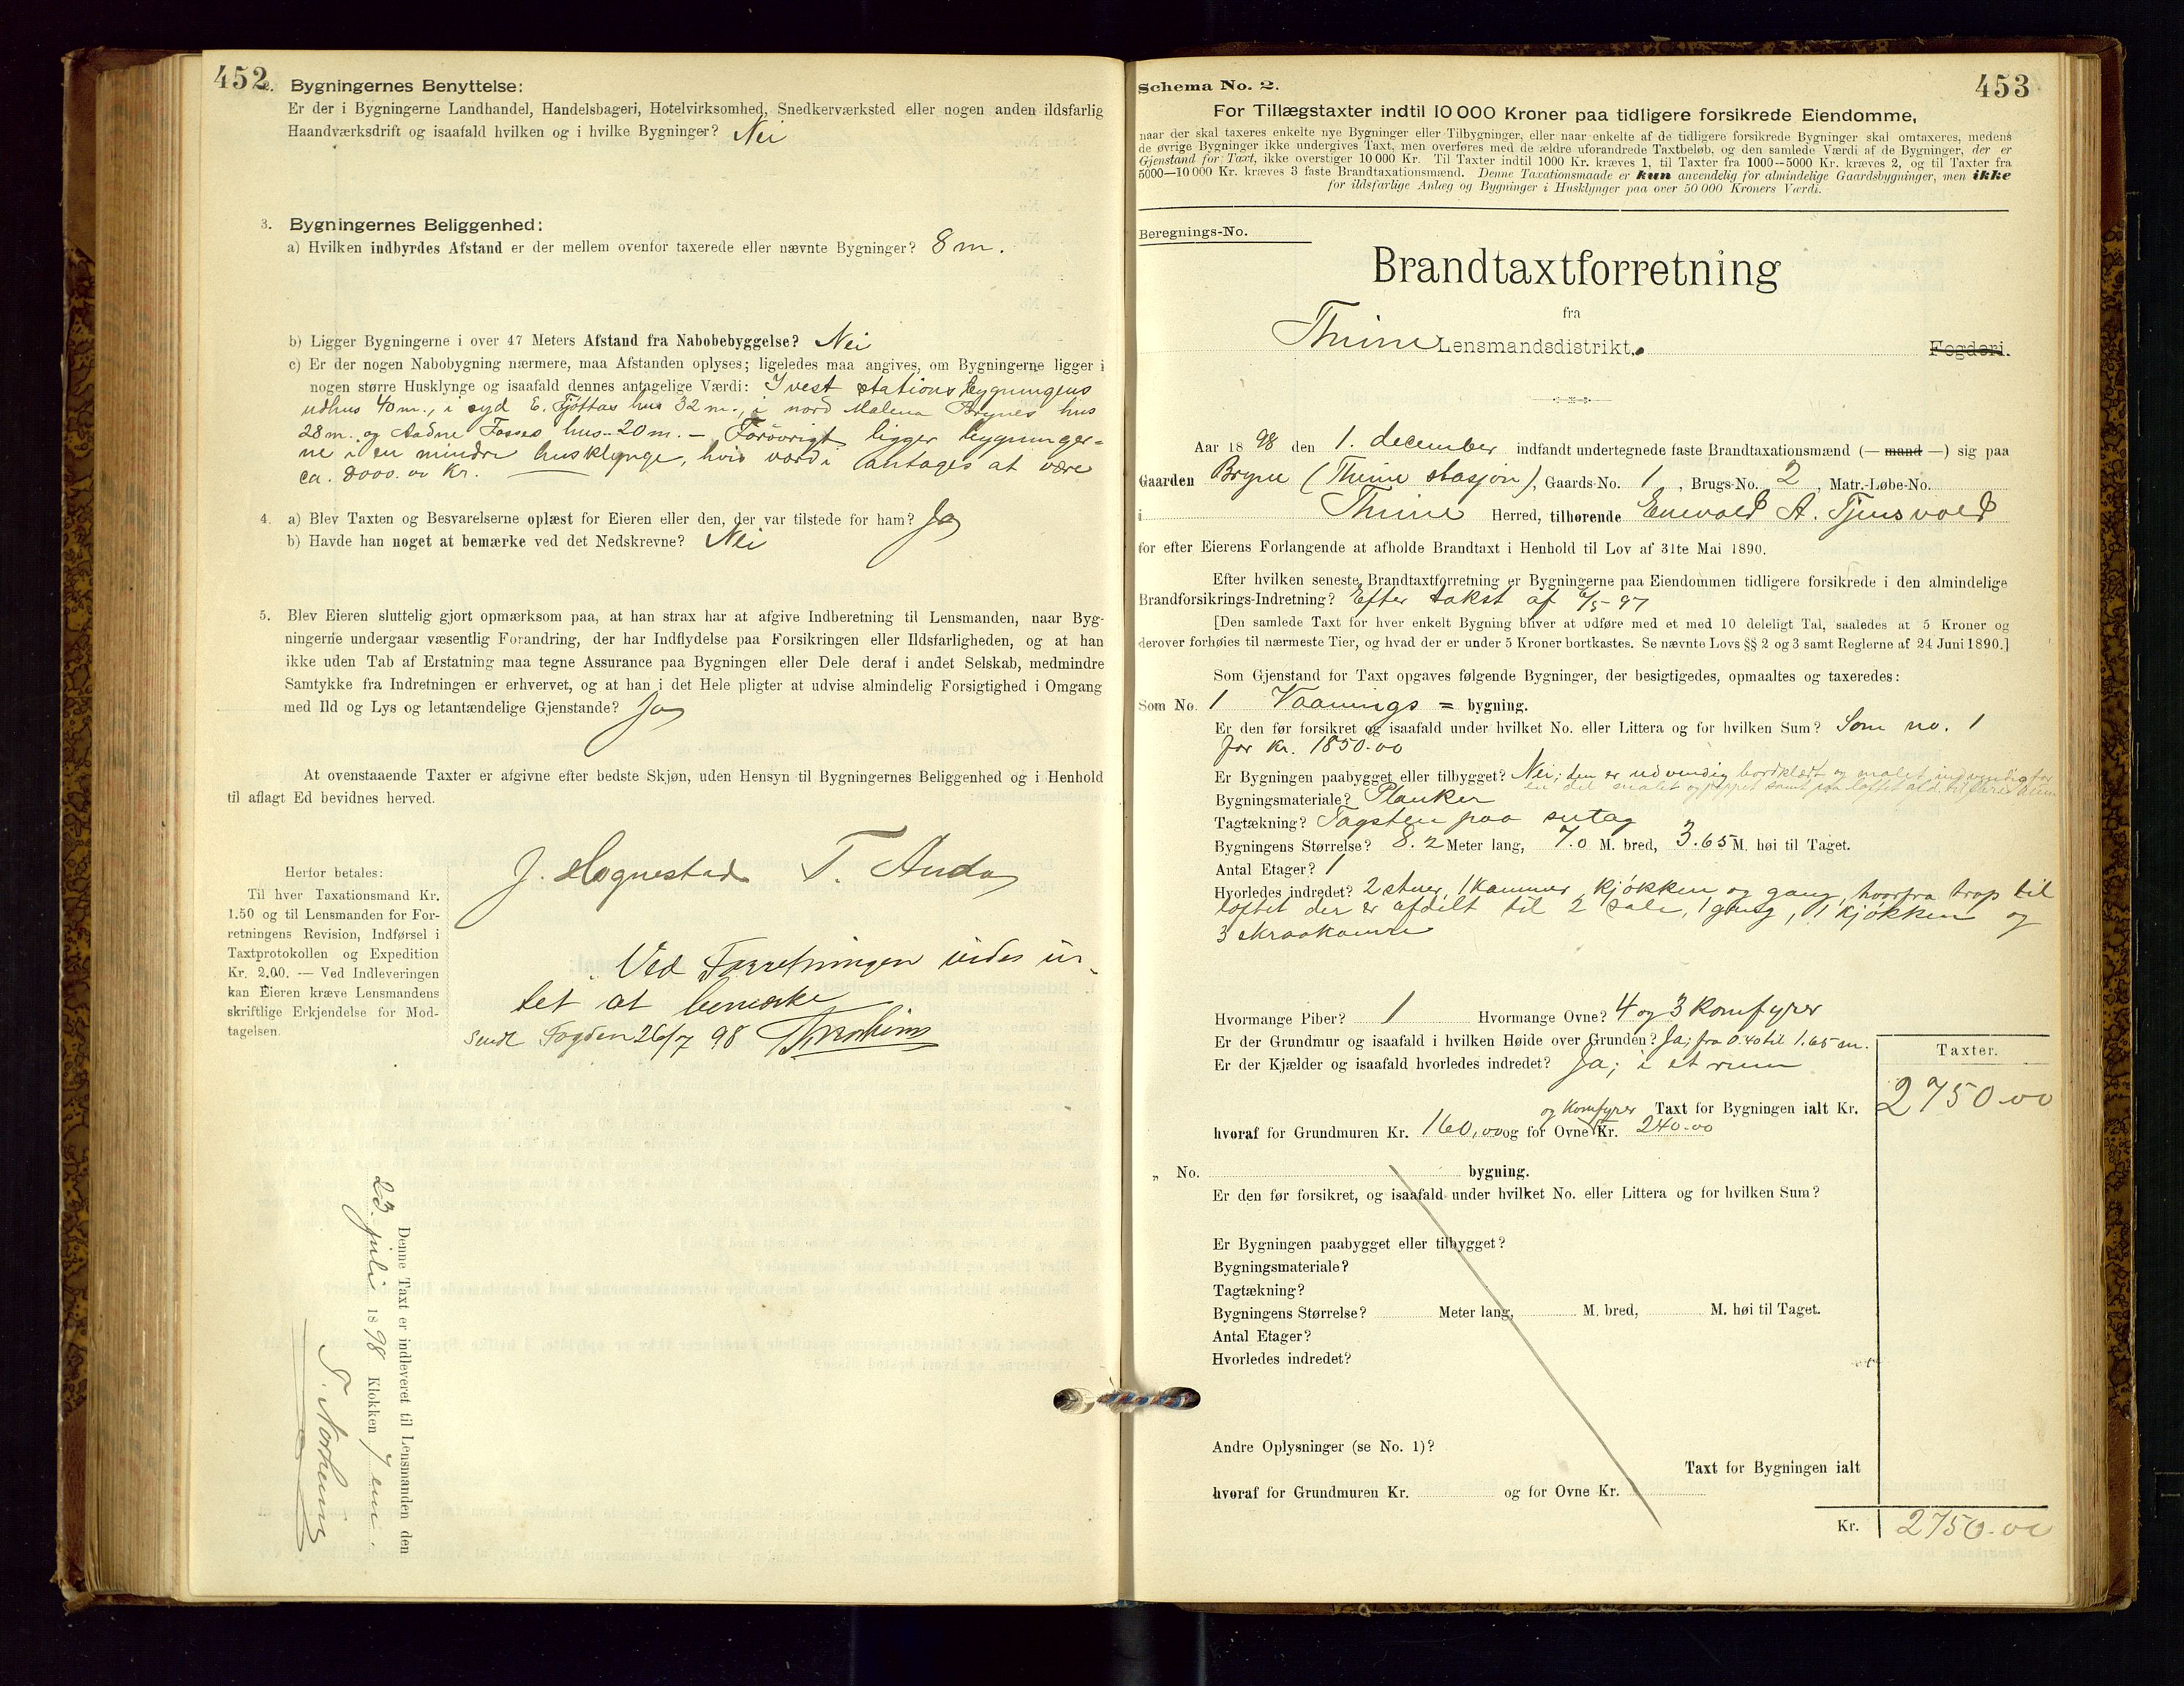 452
2. Bygningernes Benyttelse:
Er der i Bygningerne Landhandel, Handelsbageri, Hotelvirksomhed, Snedkerværksted eller nogen anden ildsfarlig
Haandværksdrift og isaafald hvilken og i hvilke Bygninger? Nei
3. Bygningernes Beliggenhed:
a) Hvilken indbyrdes Afstand er der mellem ovenfor taxerede eller nævnte Bygninger? 8 m.
b) Ligger Bygningerne i over 47 Meters Afstand fra Nabobebyggelse? Nei
c) Er der nogen Nabobygning nærmere, maa Afstanden oplyses; ligeledes maa angives, om Bygningerne ligger i
nogen større Husklynge og isaafald dennes antagelige Værdi: I vest stationsbygningens
udhus 40 m., i syd E. Tjøttas hus 32 m., i nord Malena Brynes hus
28 m. og Aadne Fosses hus 20 m. — Forøvrigt ligger bygninger=
ne i en mindre husklynge, hvis værdi antages at være
ca. 8000.00 Kr.
4. a) Blev Taxten og Besvarelserne oplæst for Eieren eller den, der var tilstede for ham? Ja
b) Havde han noget at bemærke ved det Nedskrevne? Nei
5. Blev Eieren sluttelig gjort opmærksom paa, at han strax har at afgive Indberetning til Lensmanden, naar Byg-
ningerne undergaar væsentlig Forandring, der har Indflydelse paa Forsikringen eller Ildsfarligheden, og at han
ikke uden Tab af Erstatning maa tegne Assurance paa Bygningen eller Dele deraf i andet Selskab, medmindre
Samtykke fra Indretningen er erhvervet, og at han i det Hele pligter at udvise almindelig Forsigtighed i Omgang
med Ild og Lys og letantændelige Gjenstande? Ja
At ovenstaaende Taxter er afgivne efter bedste Skjøn, uden Hensyn til Bygningernes Beliggenhed og i Henhold
til aflagt Ed bevidnes herved.
J. Hognestad T. Anda
Herfor betales:
Til hver Taxationsmand Kr.
1.50 og til Lensmanden for For-
retningens Revision, Indførsel i
Taxtprotokollen og Expedition
Kr. 2.00. — Ved Indleveringen
kan Eieren kræve Lensmandens
skriftlige Erkjendelse for Mod-
tagelsen.
Ved Forretningen vides in-
tet at bemærke
Sendt Fogden 26/7 98
Denne Taxt er indleveret til Lensmanden den
23. juli 1898 Klokken 7 em.
453
Schema No. 2.
For Tillægstaxter indtil 10 000 Kroner paa tidligere forsikrede Eiendomme,
naar der skal taxeres enkelte nye Bygninger eller Tilbygninger, eller naar enkelte af de tidligere forsikrede Bygninger skal omtaxeres, medens
de øvrige Bygninger ikke undergives Taxt, men overføres med de ældre uforandrede Taxtbeløb, og den samlede Værdi af de Bygninger, der er
Gjenstand for Taxt, ikke overstiger 10 000 Kr. Til Taxter indtil 1000 Kr. kræves 1, til Taxter fra 1000—5000 Kr. kræves 2, og til Taxter fra
5000—10 000 Kr. kræves 3 faste Brandtaxationsmænd. Denne Taxationsmaade er kun anvendelig for almindelige Gaardsbygninger, men ikke
for ildsfarlige Anlæg og Bygninger i Husklynger paa over 50 000 Kroners Værdi.
Beregnings-No.
Brandtaxtforretning
fra
Thime Lensmandsdistrikt, Fogderi.
Aar 1898 den 1. december indfandt undertegnede faste Brandtaxationsmænd (— mand —) sig paa
Gaarden Bryne (Thime stasjon), Gaards-No. 1, Brugs-No. 2, Matr.-Løbe-No.
i Thime Herred, tilhørende Enevold A. Tjensvold
for efter Eierens Forlangende at afholde Brandtaxt i Henhold til Lov af 31te Mai 1890.
Efter hvilken seneste Brandtaxtforretning er Bygningerne paa Eiendommen tidligere forsikrede i den almindelige
Brandforsikrings-Indretning? Efter takst af 6/5-97
[Den samlede Taxt for hver enkelt Bygning bliver at udføre med et med 10 deleligt Tal, saaledes at 5 Kroner og
derover forhøies til nærmeste Tier, og hvad der er under 5 Kroner bortkastes. Se nævnte Lovs §§ 2 og 3 samt Reglerne af 24 Juni 1890.]
Som Gjenstand for Taxt opgaves følgende Bygninger, der besigtigedes, opmaaltes og taxeredes:
Som No. 1 Vaanings = bygning.
Er den før forsikret og isaafald under hvilket No. eller Littera og for hvilken Sum? Som no. 1
for kr. 1850.00
Er Bygningen paabygget eller tilbygget? Nei; den er udvendig bordklædt og malet, indvendig for
en del malet og pappet samt paa loftet
Bygningsmateriale? Planker
Tagtækning? Tagsten paa sutag
Bygningens Størrelse? 8.2 Meter lang, 7.0 M. bred, 3.65 M. høi til Taget.
Antal Etager? 1
Hvorledes indredet? 2 stuer, 1 kammer, kjøkken og gang, hvorfra trap til
loftet der er afdelt til 2 sale, 1 gang, 1 kjøkken og
3 skraakamre
Hvormange Piber? 1 Hvormange Ovne? 4 og 3 komfyrer
Er der Grundmur og isaafald i hvilken Høide over Grunden? Ja; fra 0.40 til 1.65 m.
Er der Kjælder og isaafald hvorledes indredet? Ja; i et rum
Taxter.
Taxt for Bygningen ialt Kr. 2750.00
og komfyrer
hvoraf for Grundmuren Kr. 160,00 og for Ovne Kr. 240.00
„ No. bygning.
Er den før forsikret, og isaafald under hvilket No. eller Littera og for hvilken Sum?
Er Bygningen paabygget eller tilbygget?
Bygningsmateriale?
Tagtækning?
Bygningens Størrelse? Meter lang, M. bred, M. høi til Taget.
Antal Etager?
Hvorledes indredet?
Andre Oplysninger (se No. 1)?
Taxt for Bygningen ialt
hvoraf for Grundmuren Kr. og for Ovne Kr.
Kr. 2750.00